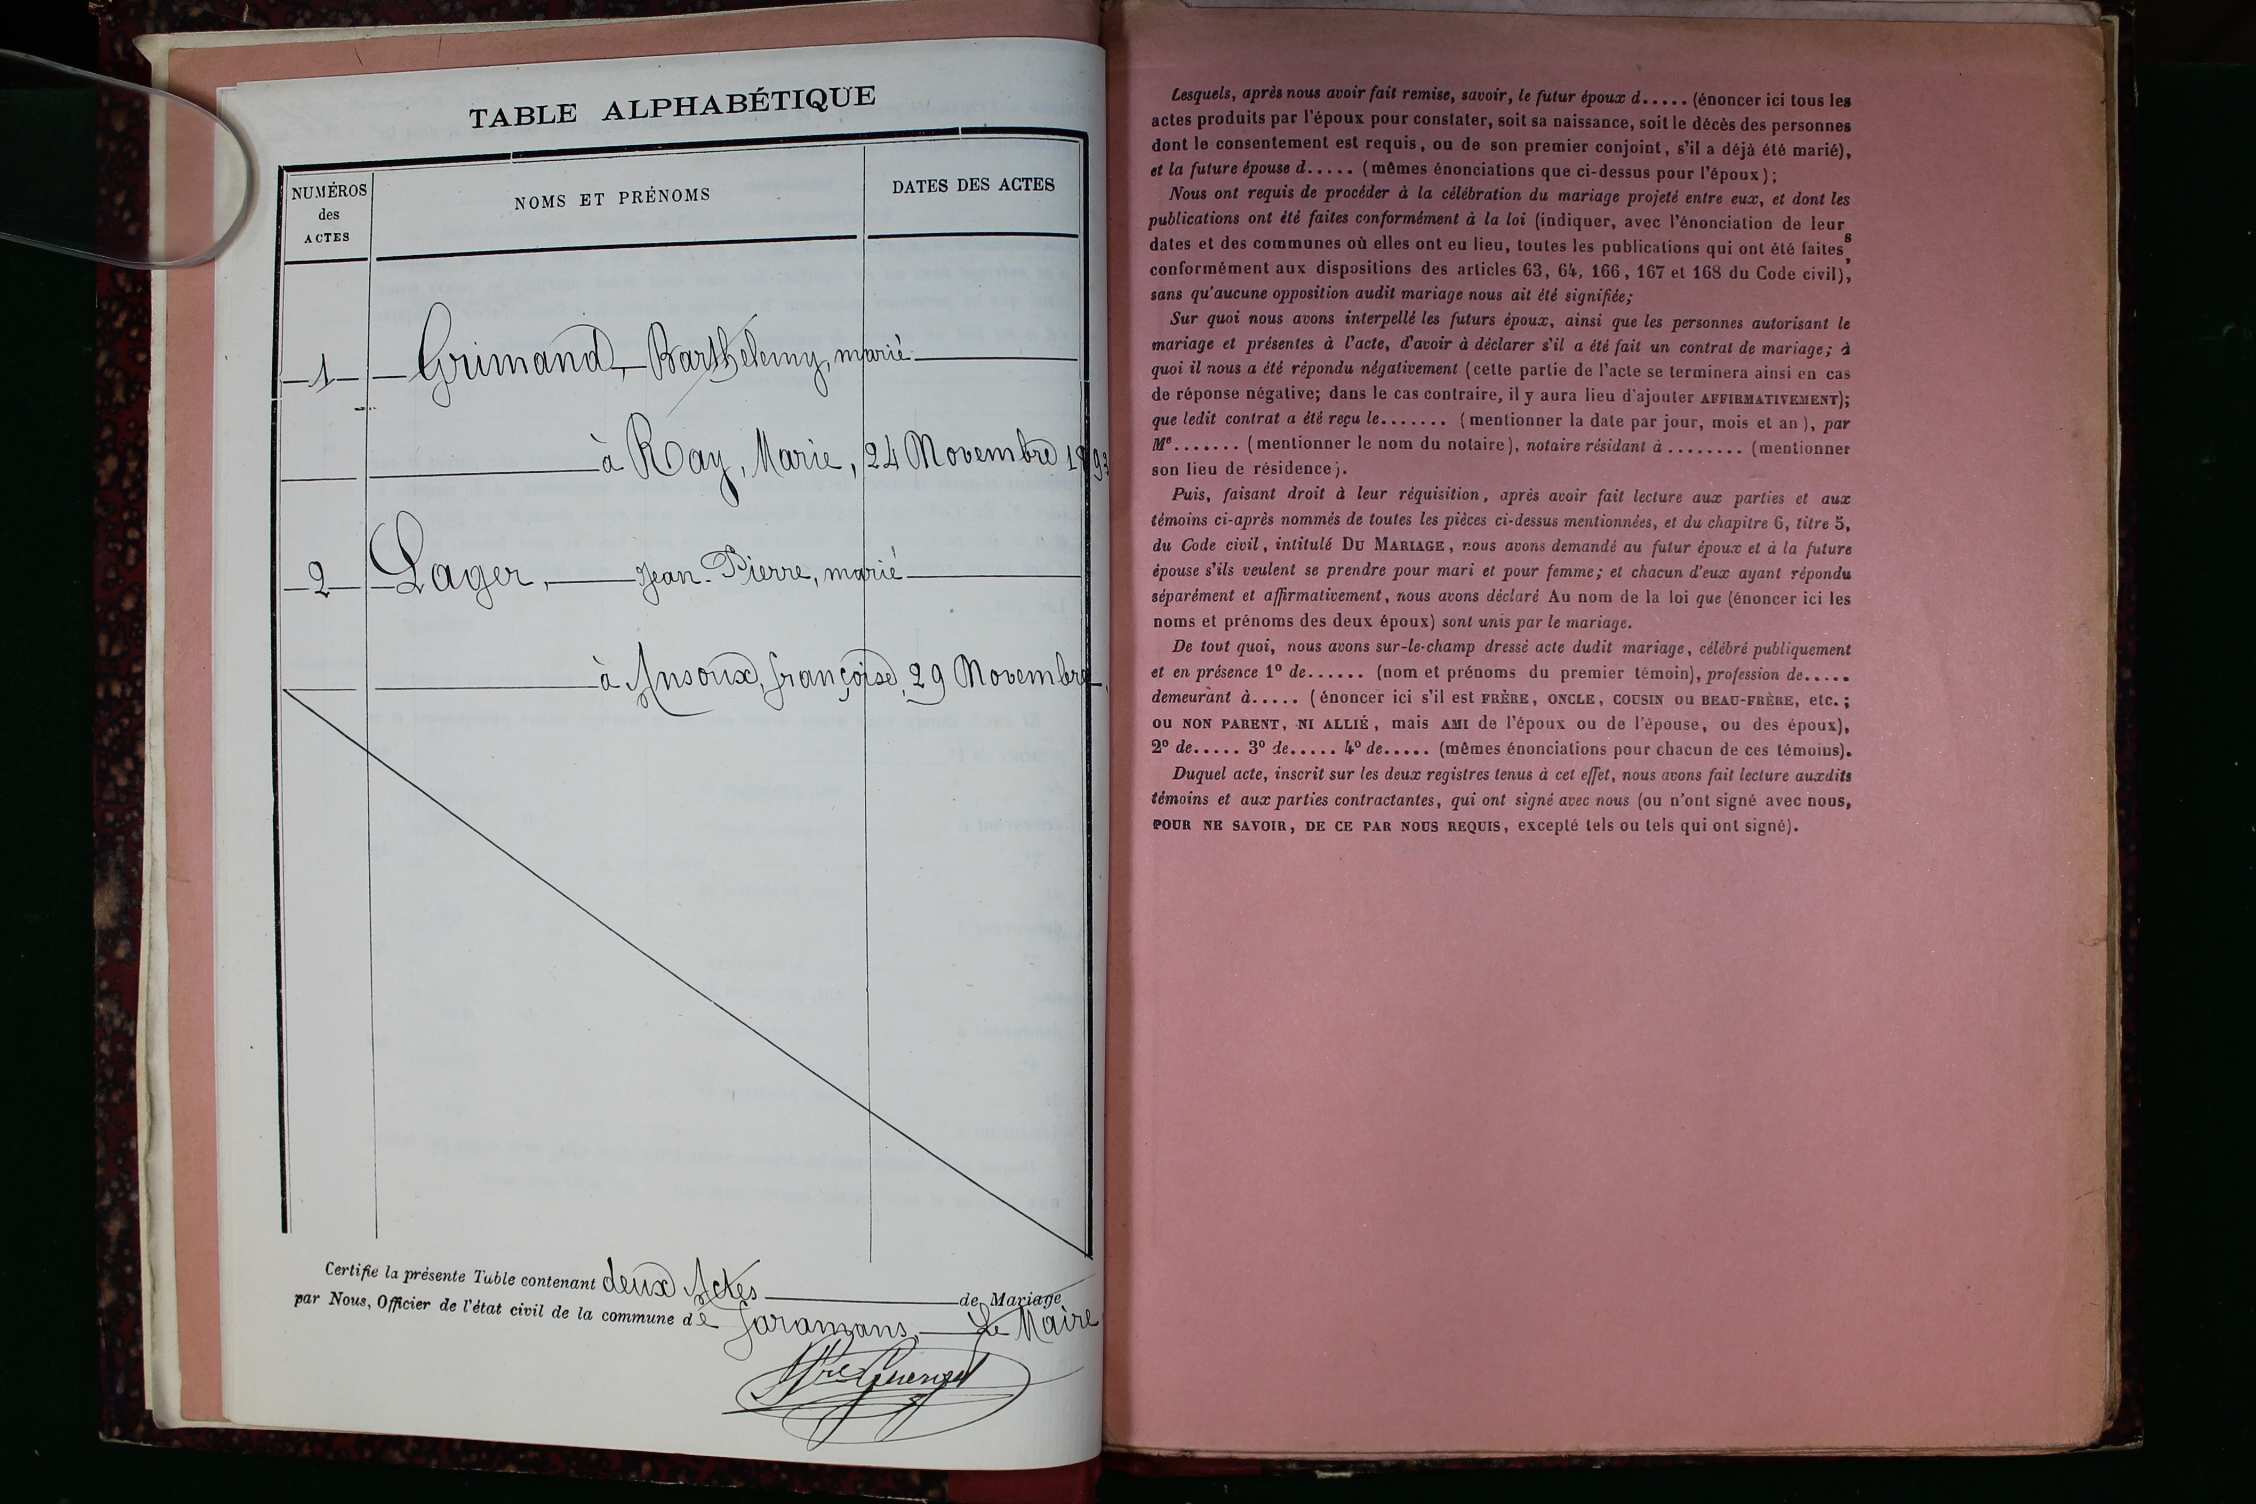 TABLE ALPHABÉTIQUE
NUMÉROS
des
ACTES
NOMS ET PRÉNOMS
DATES DES ACTES
1 Grimand, Barthelemy, marié
à Ray, Marie, 24 Novembre 1893
2 Lager, Jean-Pierre, marié
à Ansoux, françoise, 29 Novembre
Certifie la présente Table contenant deux Actes de Mariage
par Nous, Officier de l'état civil de la commune de faramans, Le Maire
Lesquels, après nous avoir fait remise, savoir, le futur époux d..... (énoncer ici tous les
actes produits par l'époux pour constater, soit sa naissance, soit le décès des personnes
dont le consentement est requis, ou de son premier conjoint, s'il a déjà été marié),
et la future épouse d..... (mêmes énonciations que ci-dessus pour l'époux);
Nous ont requis de procéder à la célébration du mariage projeté entre eux, et dont les
publications ont été faites conformément à la loi (indiquer, avec l'énonciation de leurs
dates et des communes où elles ont eu lieu, toutes les publications qui ont été faites,
conformément aux dispositions des articles 63, 64, 166, 167 et 168 du Code civil),
sans qu'aucune opposition audit mariage nous ait été signifiée;
Sur quoi nous avons interpellé les futurs époux, ainsi que les personnes autorisant le
mariage et présentes à l'acte, d'avoir à déclarer s'il a été fait un contrat de mariage; à
quoi il nous a été répondu négativement (cette partie de l'acte se terminera ainsi en cas
de réponse négative; dans le cas contraire, il y aura lieu d'ajouter AFFIRMATIVEMENT);
que ledit contrat a été reçu le....... (mentionner la date par jour, mois et an), par
Me....... (mentionner le nom du notaire), notaire résidant à ........ (mentionner
son lieu de résidence).
Puis, faisant droit à leur réquisition, après avoir fait lecture aux parties et aux
témoins ci-après nommés de toutes les pièces ci-dessus mentionnées, et du chapitre 6, titre 5,
du Code civil, intitulé DU MARIAGE, nous avons demandé au futur époux et à la future
épouse s'ils veulent se prendre pour mari et pour femme; et chacun d'eux ayant répondu
séparément et affirmativement, nous avons déclaré Au nom de la loi que (énoncer ici les
noms et prénoms des deux époux) sont unis par le mariage.
De tout quoi, nous avons sur-le-champ dressé acte dudit mariage, célébré publiquement
et en présence 1º de...... (nom et prénoms du premier témoin), profession de.....
demeurant à..... (énoncer ici s'il est FRÈRE, ONCLE, COUSIN OU BEAU-FRÈRE, etc.;
OU NON PARENT, NI ALLIÉ, mais AMI de l'époux ou de l'épouse, ou des époux),
2º de..... 3º de..... 4º de..... (mêmes énonciations pour chacun de ces témoins).
Duquel acte, inscrit sur les deux registres tenus à cet effet, nous avons fait lecture auxdits
témoins et aux parties contractantes, qui ont signé avec nous (ou n'ont signé avec nous,
POUR NE SAVOIR, DE CE PAR NOUS REQUIS, excepté tels ou tels qui ont signé).